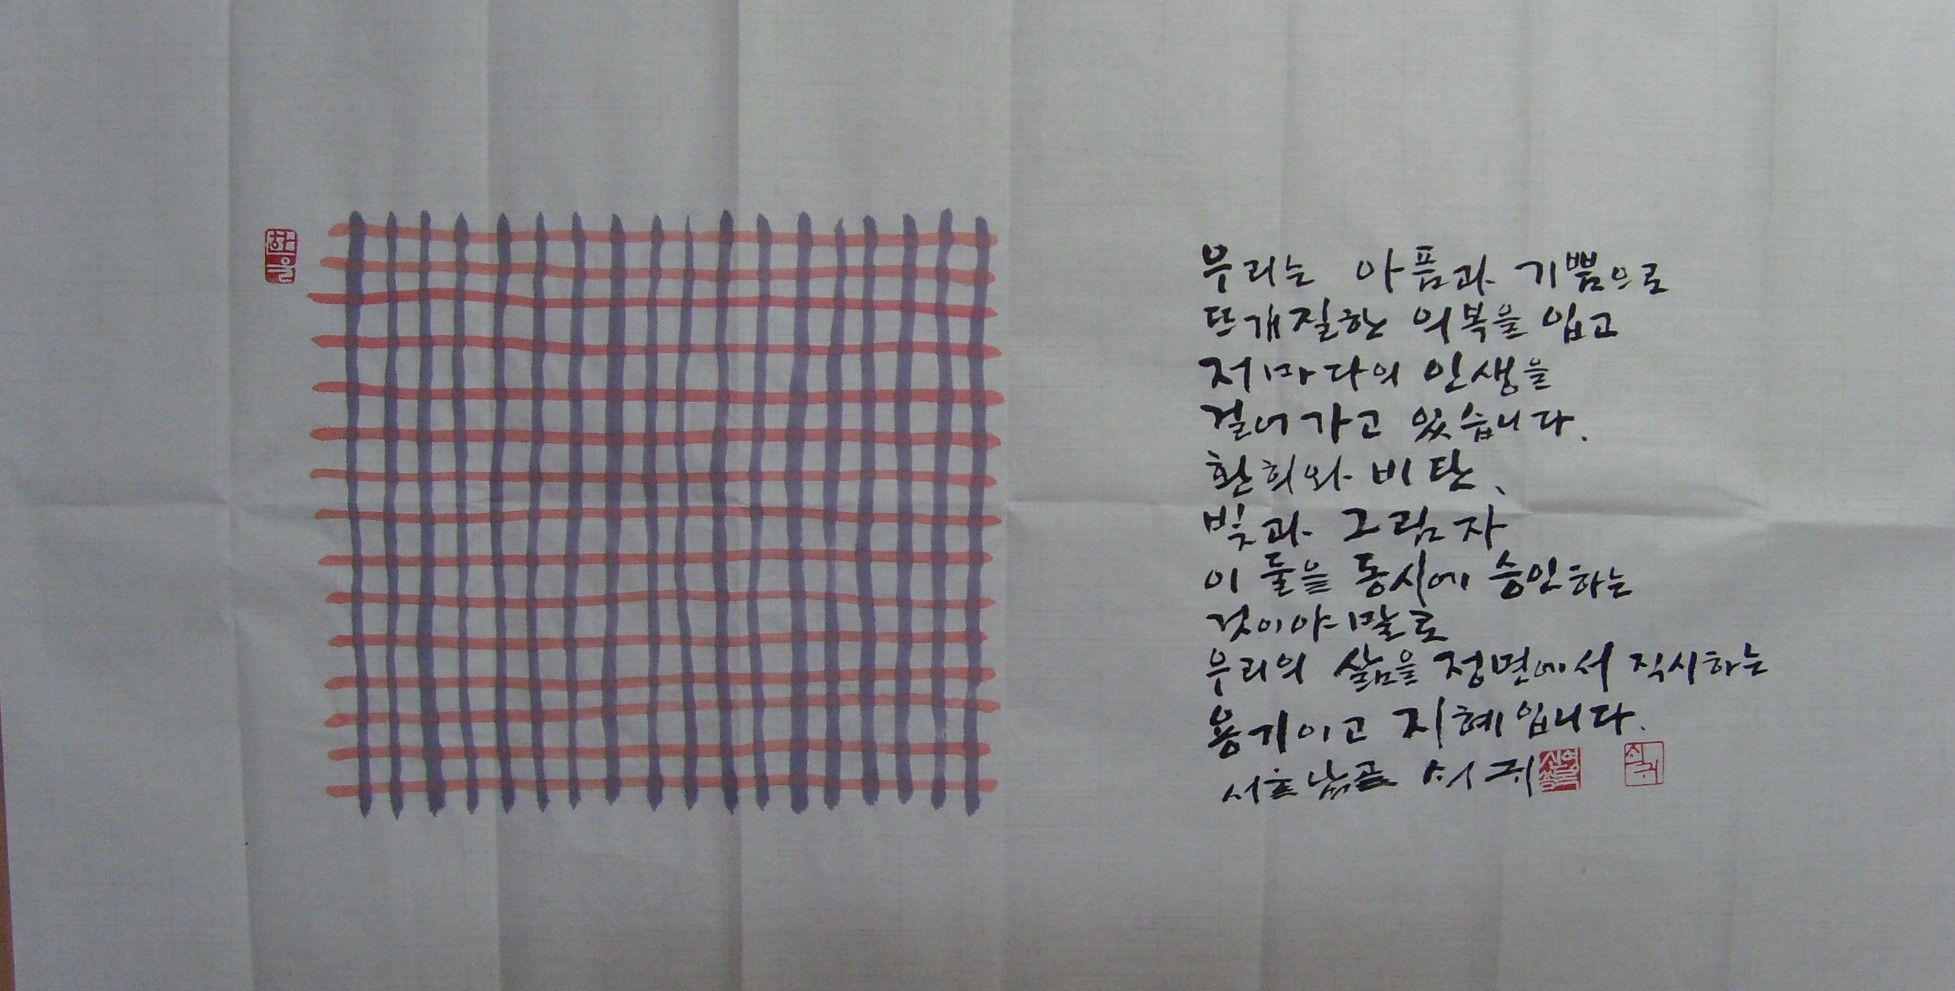 하늘
우리는 아픔과 기쁨으로
뜨개질한 의복을 입고
저마다의 인생을
걸어가고 있습니다.
환희와 비탄,
빛과 그림자
이 둘을 동시에 승인하는
것이야말로
우리의 삶을 정면에서 직시하는
용기이고 지혜입니다.
쇠귀